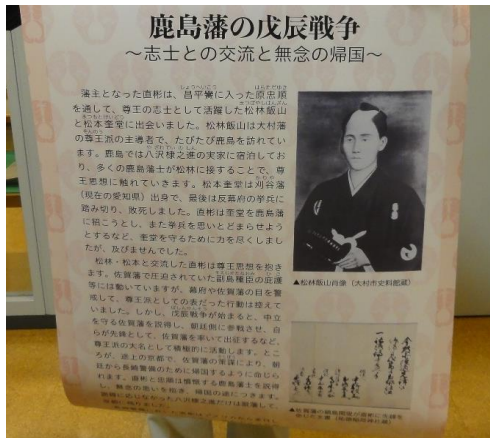 鹿島藩の戊辰戦争
～志士との交流と無念の帰国～
藩主となった直彬は、昌平黌に入った原忠順
を通して、尊王の志士として活躍した松林飯山
と松本奎堂に出会いました。松林飯山は大村藩
の尊王派の主導者で、たびたび鹿島を訪れてい
ます。鹿島では八沢棣之進の実家に宿泊してお
り、多くの鹿島藩士が松林に接することで、尊王
思想に触れていきます。松本奎堂は刈谷藩
（現在の愛知県）出身で、最後は反幕府の挙兵に
踏み切り、敗死しました。直彬は奎堂を鹿島藩
に招こうとし、また挙兵を思いとどまらせよう
とするなど、奎堂を守るために力を尽くしまし
たが、及びませんでした。
松林・松本と交流した直彬は尊王思想を抱き
ます。佐賀藩で圧迫されていた副島種臣の庇護
等には動いていますが、幕府や佐賀藩の目を警
戒して、尊王派としての表だった行動は控えて
いました。しかし、戊辰戦争が始まると、中立
を守る佐賀藩を説得し、朝廷側に参戦させ、自
らが先鋒として、佐賀藩を率いて出征するなど、
尊王派の大名として積極的に活動します。とこ
ろが、途上の京都で、佐賀藩の策謀により、朝
廷から長崎警備のために帰国するように命じら
れます。直彬と忠順は憤慨する鹿島藩士を説得
し、無念の思いを抱き、帰国の途につきます。
▲松林飯山肖像（大村市史料館蔵）